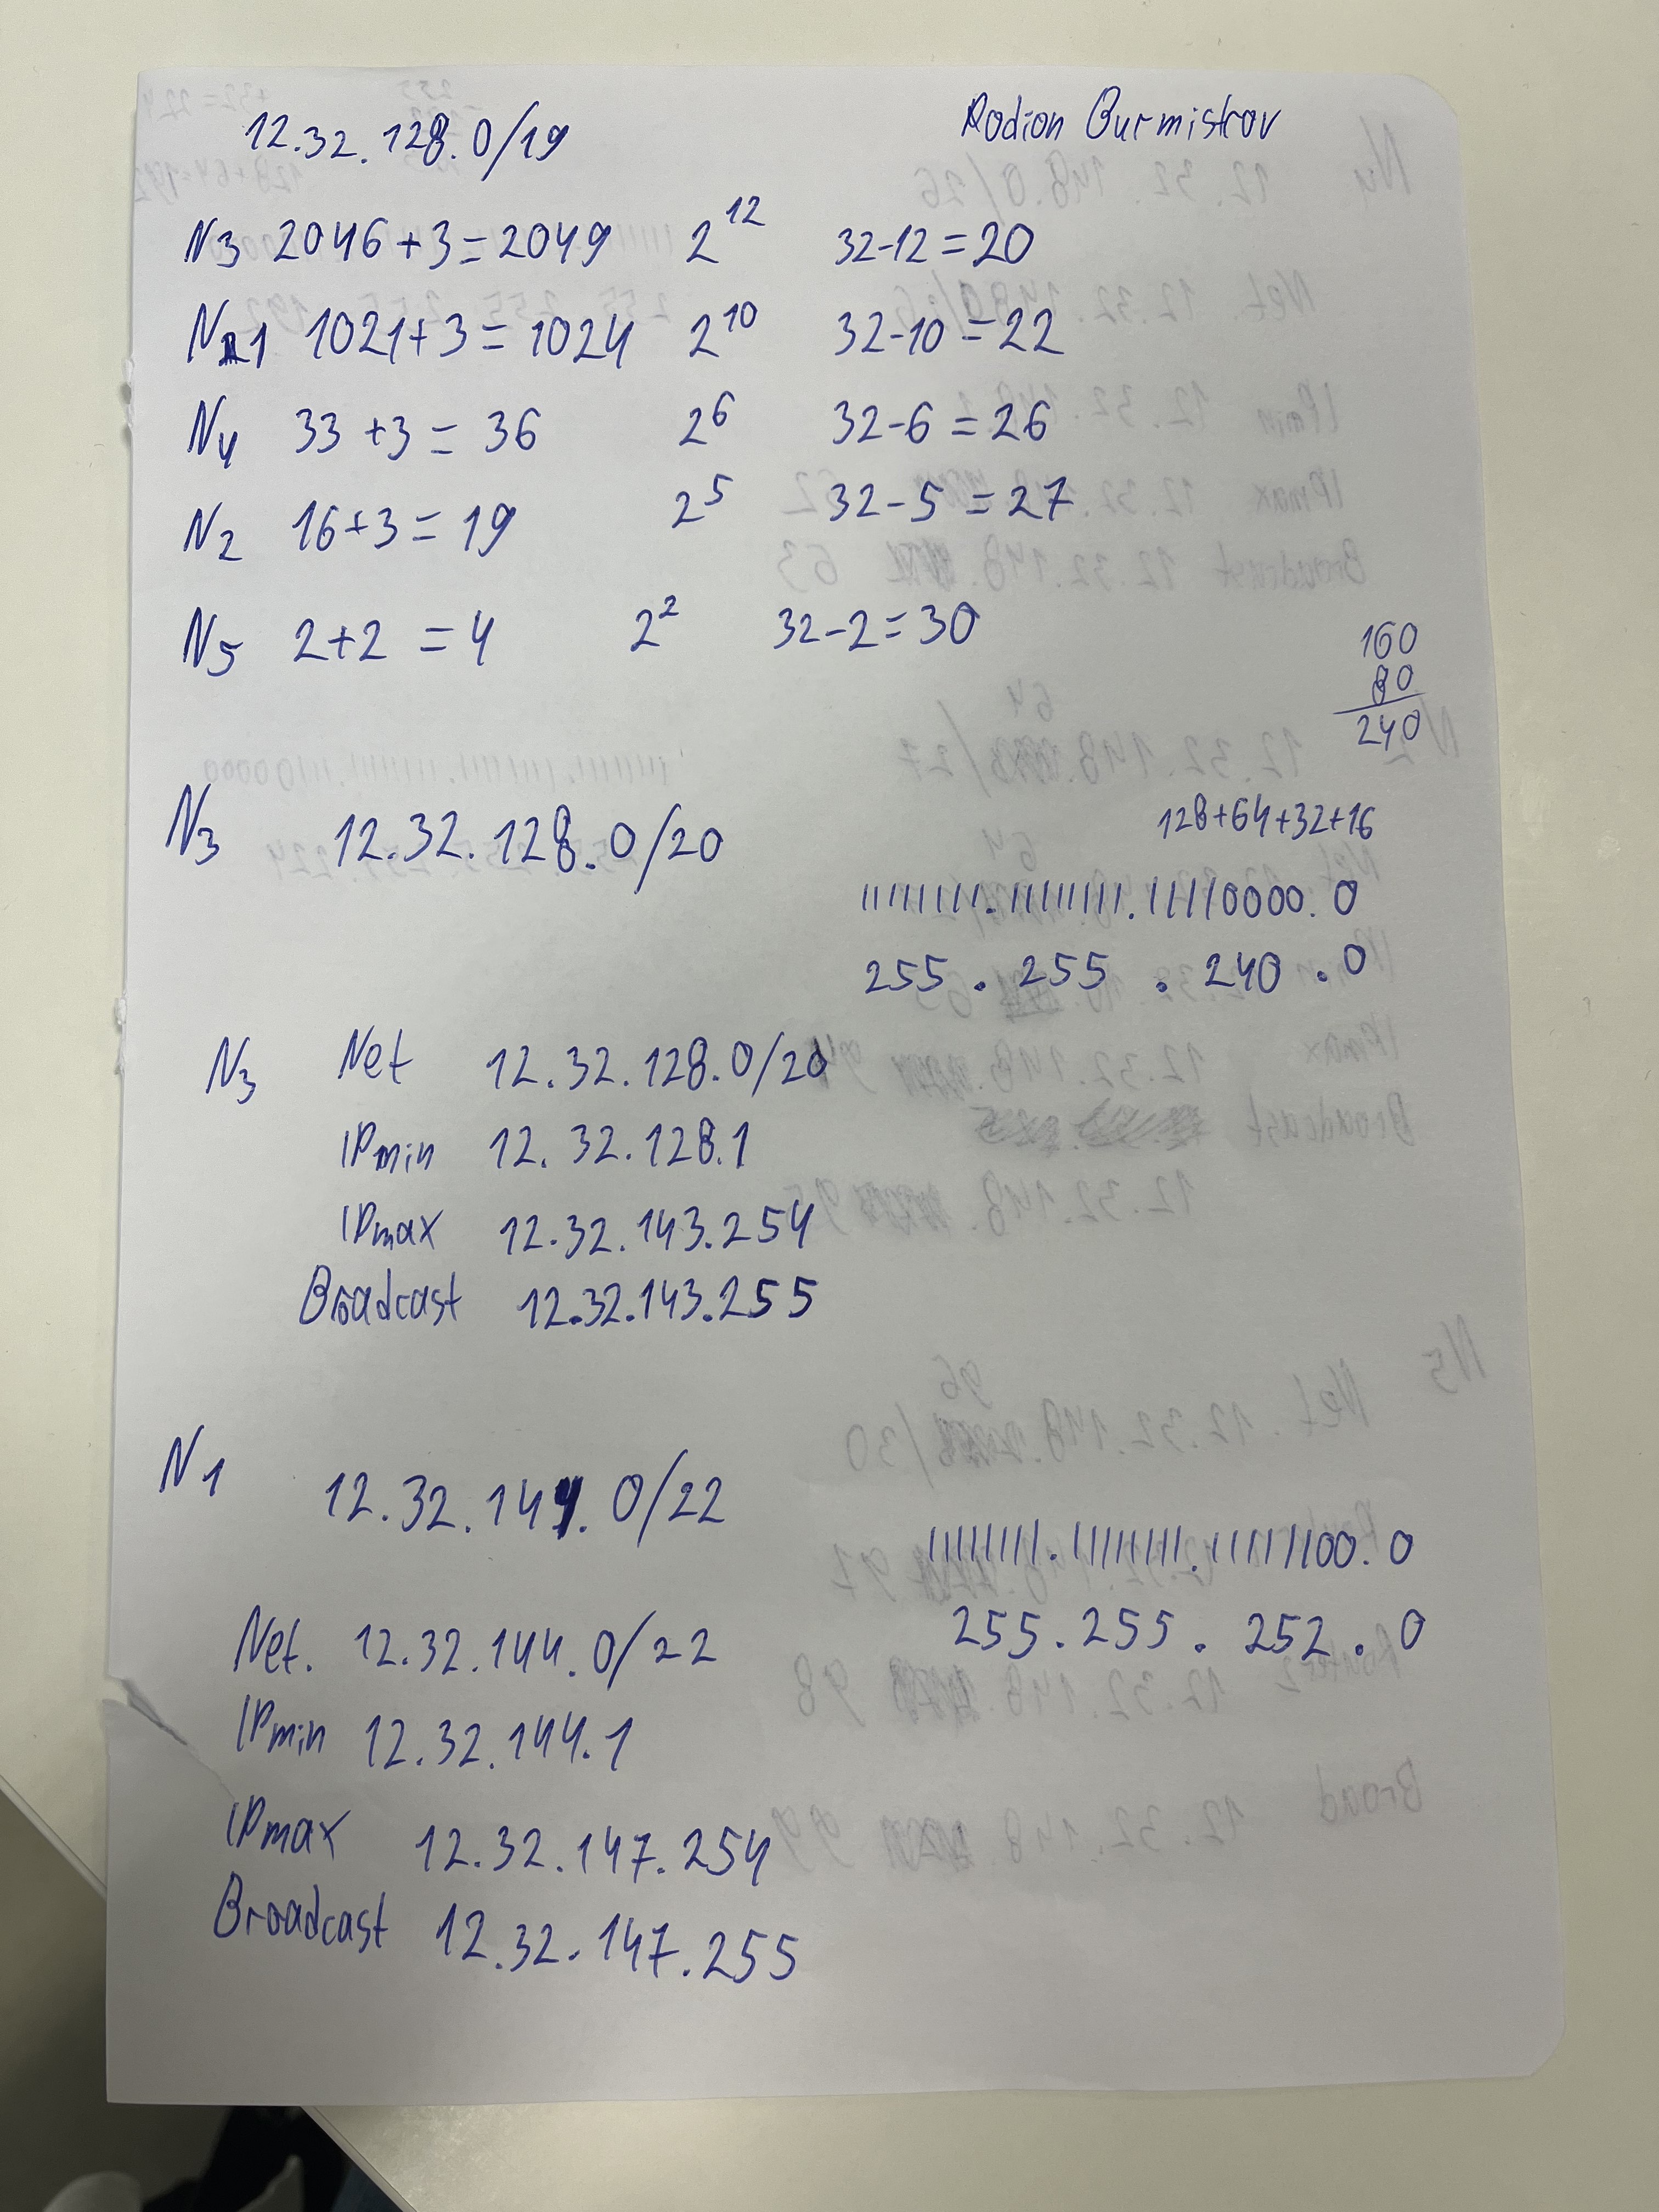 12.32.128.0/19 Rodion Burmistrov
N3 2046+3=2049 2^12 32-12=20
N1 1021+3=1024 2^10 32-10=22
N4 33+3=36 2^6 32-6=26
N2 16+3=19 2^5 32-5=27
N5 2+2=4 2^2 32-2=30
160
80
240
N3 12.32.128.0/20
128+64+32+16
11111111.11111111.11110000.0
255.255.240.0
N3 Net 12.32.128.0/20
IPmin 12.32.128.1
IPmax 12.32.143.254
Broadcast 12.32.143.255
N1 12.32.144.0/22
11111111.11111111.11111100.0
255.255.252.0
Net. 12.32.144.0/22
IPmin 12.32.144.1
IPmax 12.32.147.254
Broadcast 12.32.147.255